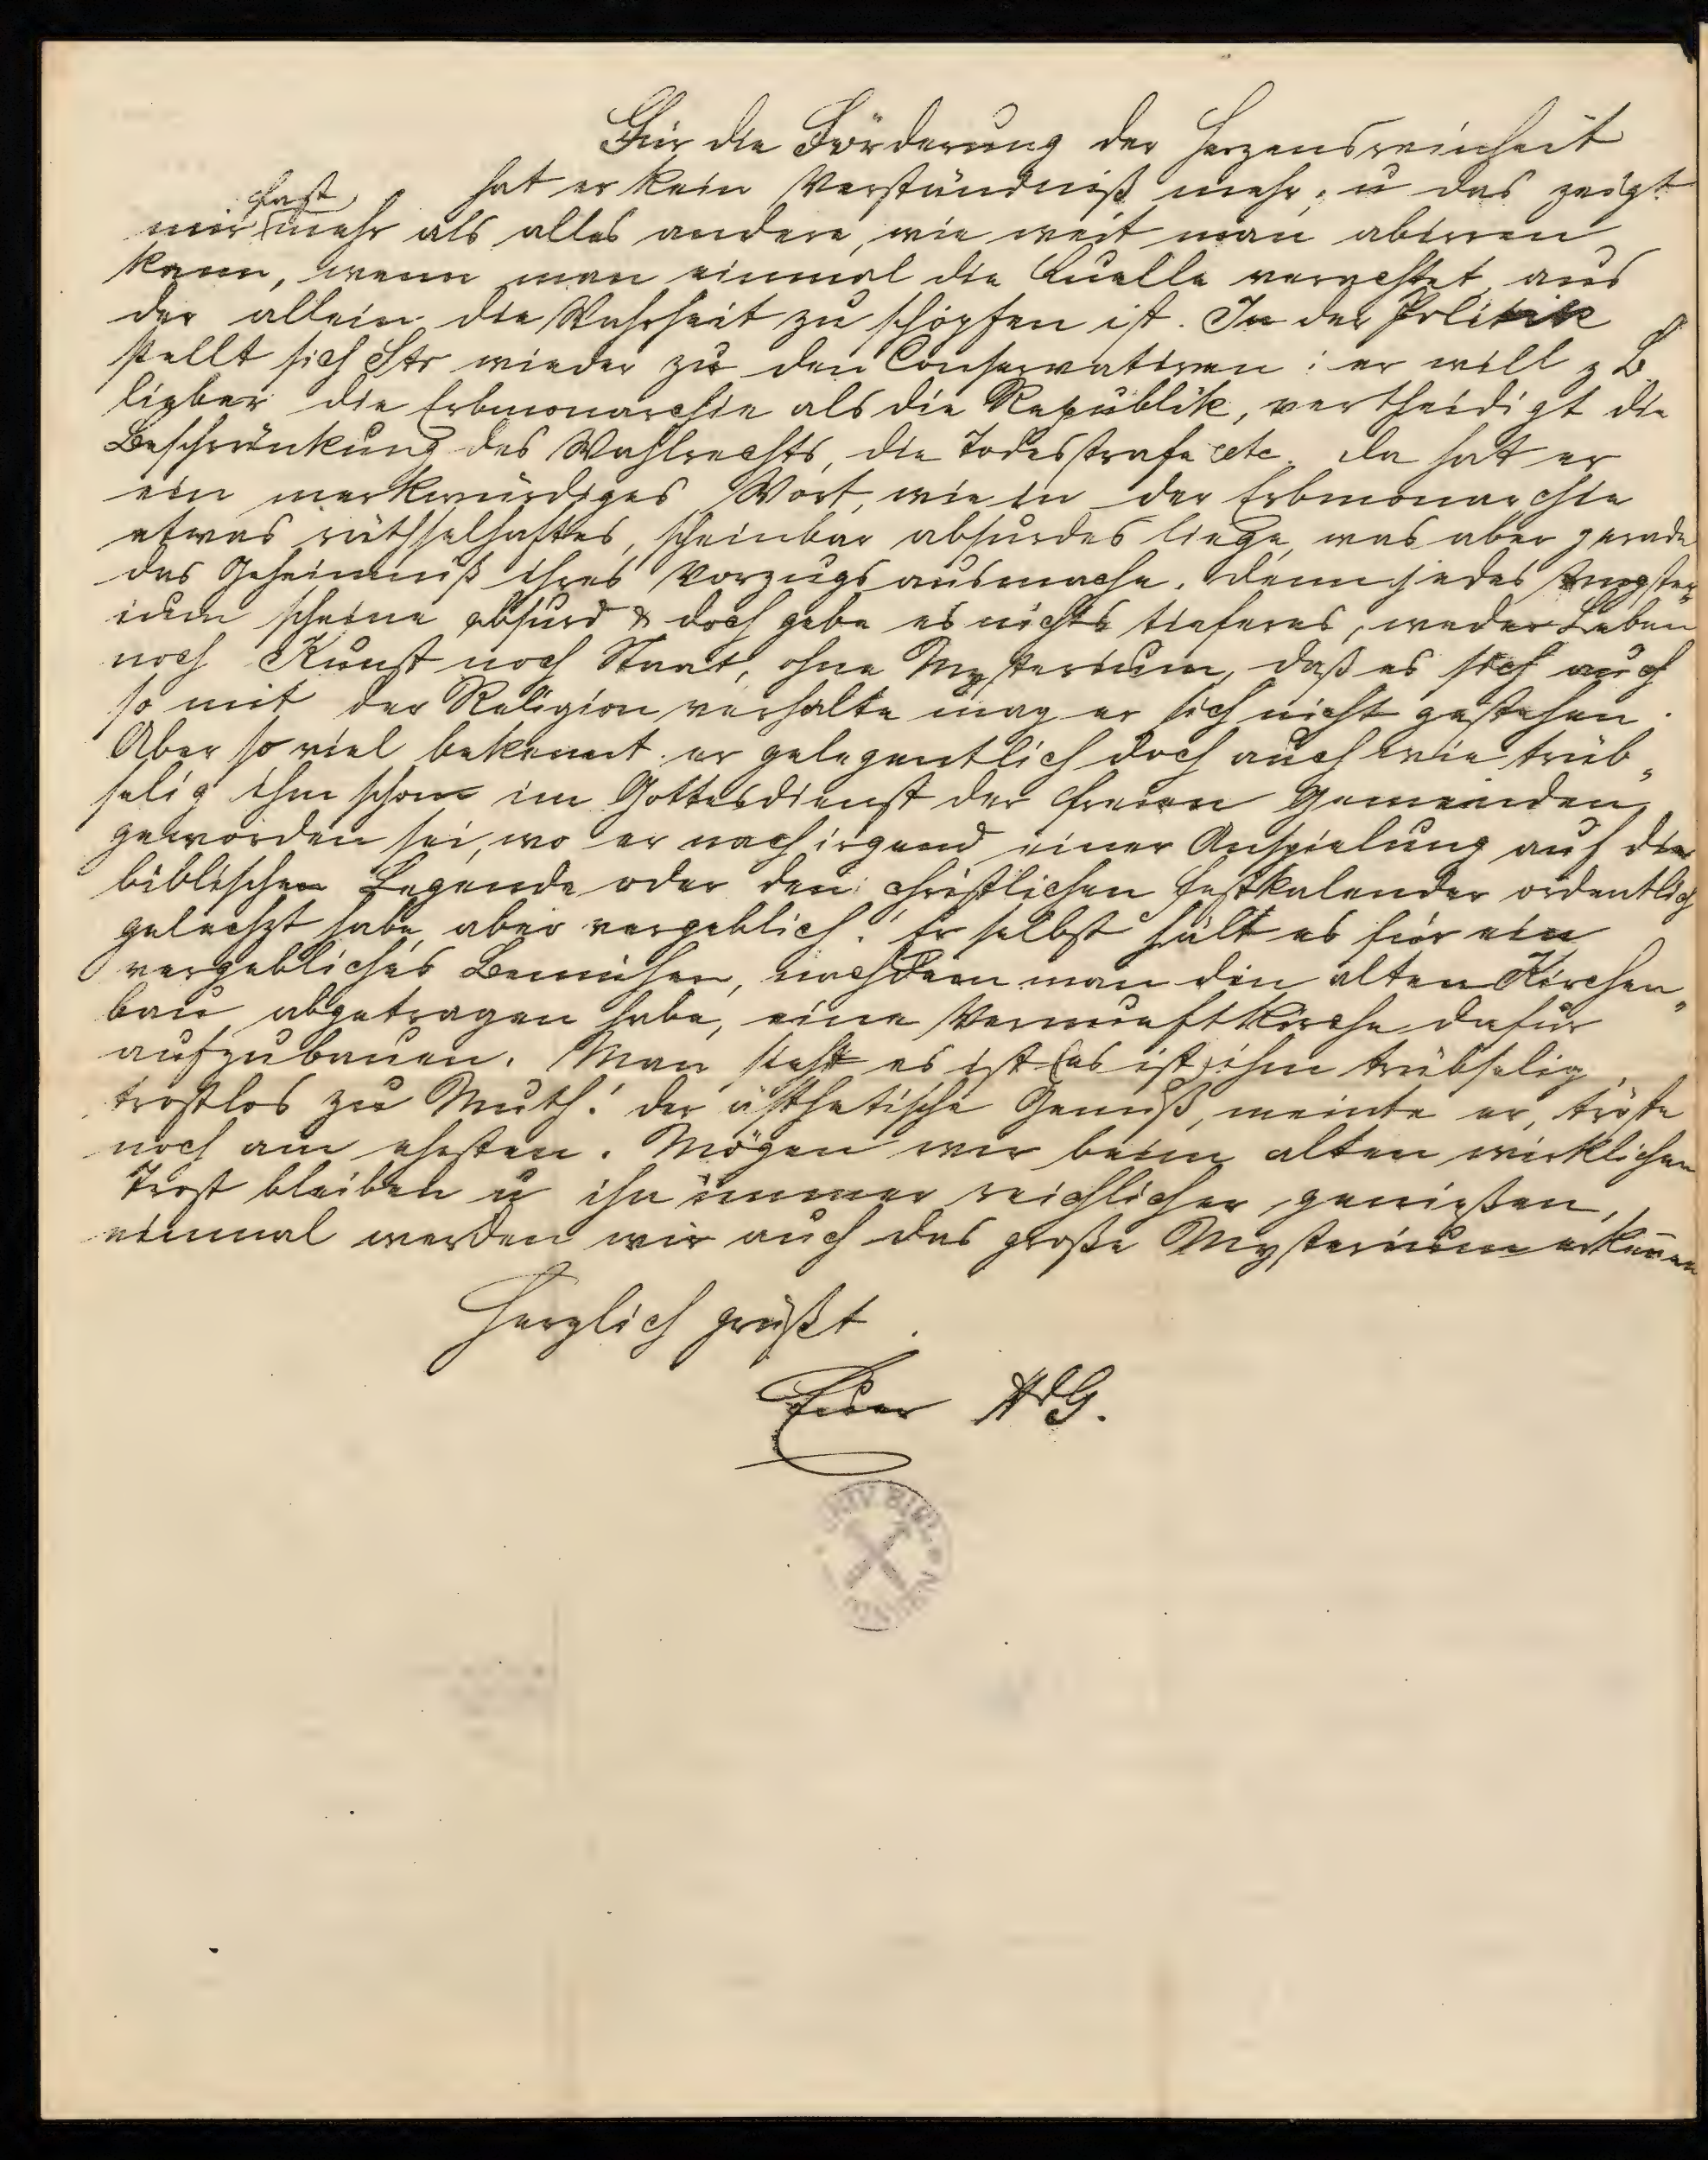 Für die Förderung der Herzensreinheit
hat er kein Verständniß mehr, u das zeigt
mir fast mehr als alles andere, wie weit man abirren
kann, wenn man einmal die Quelle verachtet, aus
der allein die Wahrheit zu schöpfen ist. In der Politik
stellt sich Str wieder zu den Conservativen: er will z B
lieber die Erbmonarchie als die Republik, vertheidigt die
Beschränkung des Wahlrechts, die Todesstrafe etc. Da hat er
ein merkwürdiges Wort, wie in der Erbmonarchie
etwas räthselhaftes, scheinbar absurdes liege, was aber gerade
das Geheimniß ihres Vorzugs ausmache. Denn jedes Myster„
ium scheine absurd & doch gebe es nichts tieferes, weder Leben
noch Kunst noch Staat, ohne Mysterium, daß es sich auch
so mit der Religion verhalte mag er sich nicht gestehen.
Aber so viel bekennt er gelegentlich doch auch wie trüb„
selig ihm schon im Gottesdienst der freien Gemeinden
geworden sei, wo er nach irgend einer Anspielung auf die
biblischen Legende oder den christlichen Festkalender ordentlich
gelechzt habe, aber vergeblich! Er selbst hält es für ein
vergebliches Bemühen, nachdem man den alten Kirchen„
bau abgetragen habe, eine Vernunftkirche dafür
aufzubauen. Man sieht es ist (es ist) ihm trübselig,
trostlos zu Muth! der ästhetische Genuß, meinte er, tröste
noch am ehesten. Mögen wir beim alten wirklichen
Trost bleiben u ihn immer reichlicher genießen,
einmal werden wir auch das große Mysterium erkennen
Herzlich grüßt
Euer AdG.
UNIV BIBL